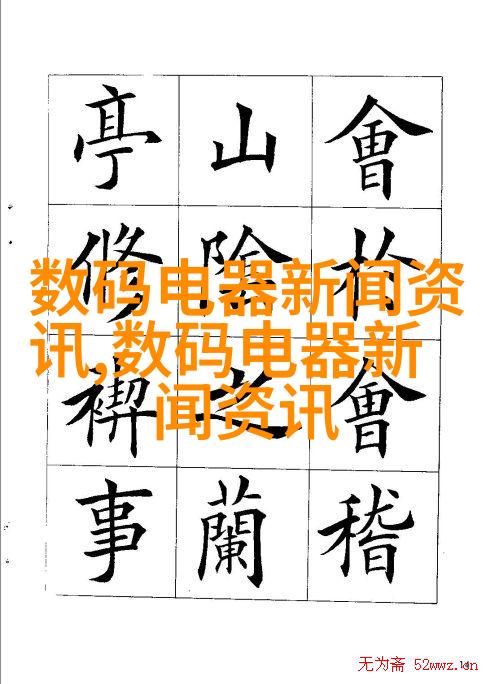 會於會稽
山陰之蘭
亭脩禊事
数码电器新闻资
讯,数码电器新
闻资讯
无为斋 52wwz.cn